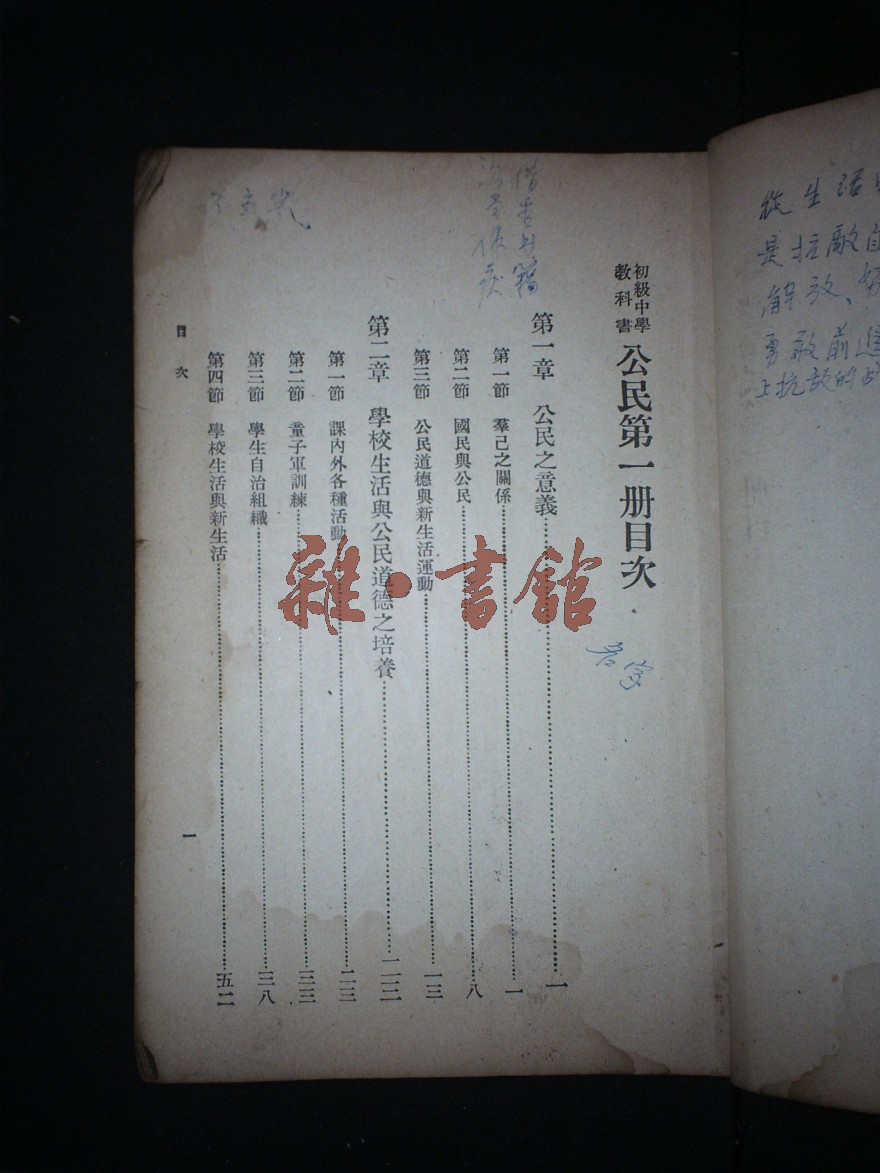 初級中學
教科書
公民第一册目次
第一章　公民之意義……一
第一節　羣己之關係……一
第二節　國民與公民……八
第三節　公民道德與新生活運動……一三
第二章　學校生活與公民道德之培養……二三
第一節　課內外各種活動……二三
第二節　童子軍訓練……三三
第三節　學生自治組織……三八
第四節　學校生活與新生活……五二
目次
一
名字
從生活
是抗敵自
解放、
勇敢前進
上抗敵的
雜·書館